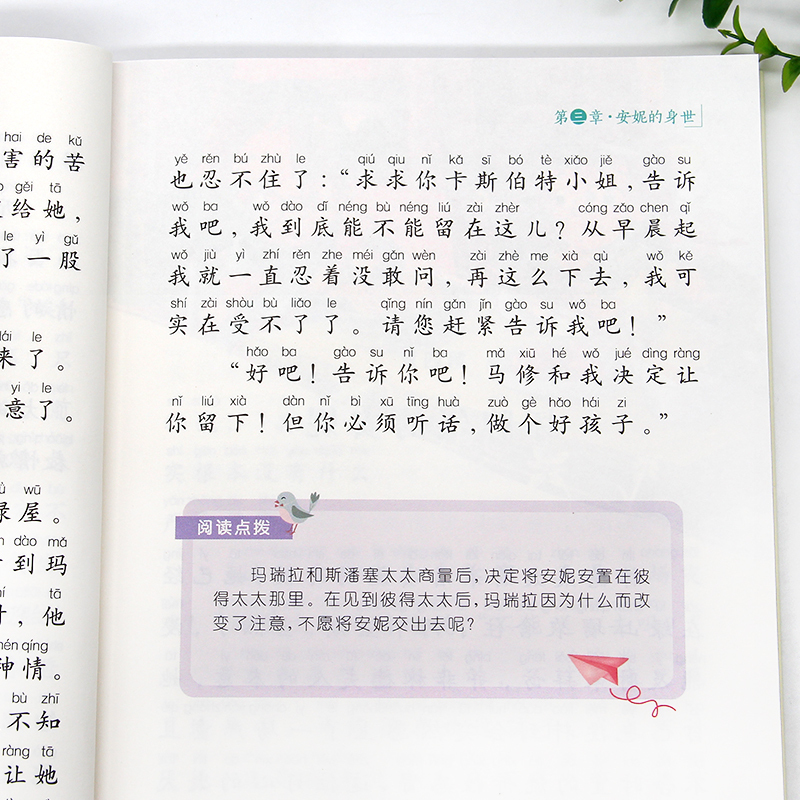 hai de kǔ
害的苦
gěi tā
给她，
le yì gǔ
了一股
lái le
来了。
yi le
意了。
wū
绿屋。
dào mǎ
到玛
tā
，他
qíng
神情。
bù zhī
不知
ràng tā
让她
第三章·安妮的身世
yě rěn bú zhù le qiú qiu nǐ kǎ sī bó tè xiǎo jiě gào su
也忍不住了：“求求你卡斯伯特小姐，告诉
wǒ ba wǒ dào dǐ néng bù néng liú zài zhèr cóng zǎo chen qǐ
我吧，我到底能不能留在这儿？从早晨起
wǒ jiù yì zhí rěn zhe méi gǎn wèn zài zhè me xià qù wǒ kě
我就一直忍着没敢问，再这么下去，我可
shí zài shòu bù liǎo le qǐng nín gǎn jǐn gào su wǒ ba
实在受不了了。请您赶紧告诉我吧！”
hǎo ba gào su nǐ ba mǎ xiū hé wǒ jué dìng ràng
“好吧！告诉你吧！马修和我决定让
nǐ liú xià dàn nǐ bì xū tīng huà zuò gè hǎo hái zi
你留下！但你必须听话，做个好孩子。”
阅读点拨
玛瑞拉和斯潘塞太太商量后，决定将安妮安置在彼
得太太那里。在见到彼得太太后，玛瑞拉因为什么而改
变了注意，不愿将安妮交出去呢？